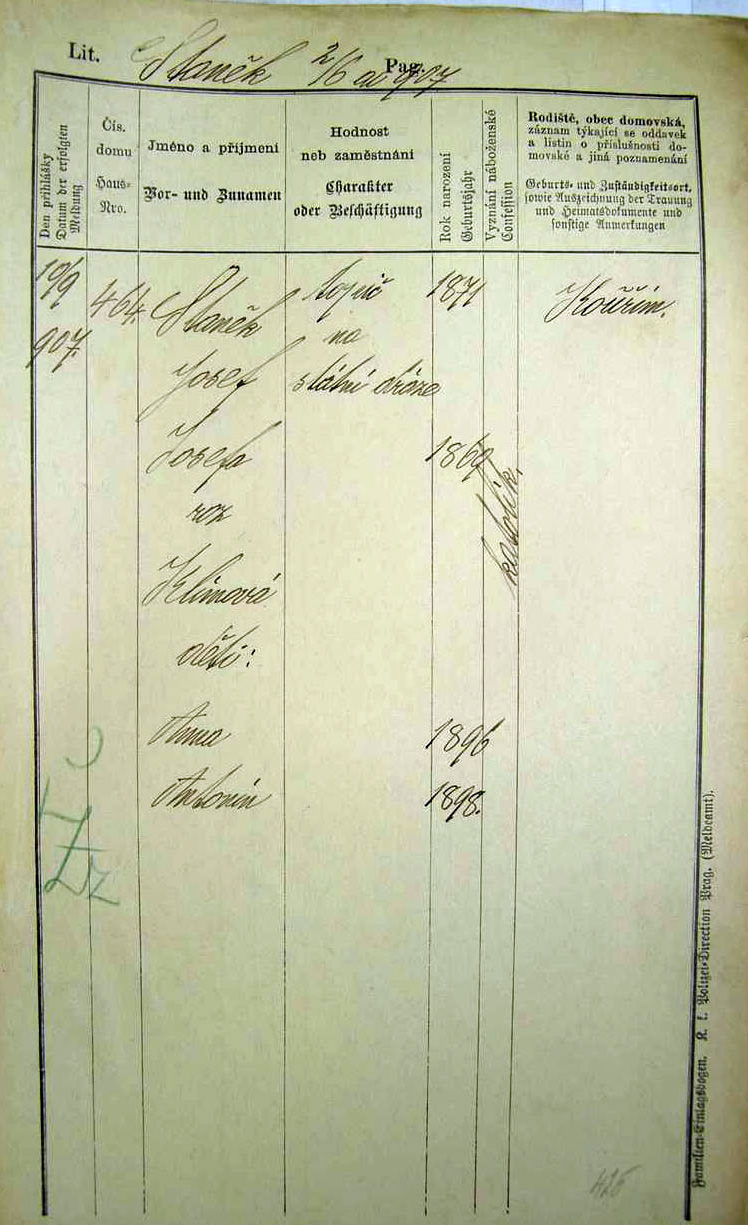 Lit. Staněk Pag.
Den přihlášky
Datum der erfolgten
Meldung
Čís.
domu
Haus-
Nro.
Jméno a příjmení
Vor- und Zunamen
Hodnost
neb zaměstnání
Charakter
oder Beschäftigung
Rok narození
Geburtsjahr
Vyznání náboženské
Confession
Rodiště, obec domovská,
záznam týkající se oddavek
a listin o příslušnosti do-
movské a jiná poznamenání
Geburts- und Zuständigkeitsort,
sowie Aufzeichnung der Trauung
und Heimatsdokumente und
sonstige Anmerkungen
10/9 464 Staněk topič 1871 Kouřim.
907. na
Josef státní dráze
Josefa 1869
katolík.
roz
Klímová
děti:
Anna 1896
Antonín 1898.
Familien-Einlagsbogen. K. k. Polizei-Direction Prag. (Meldeamt).